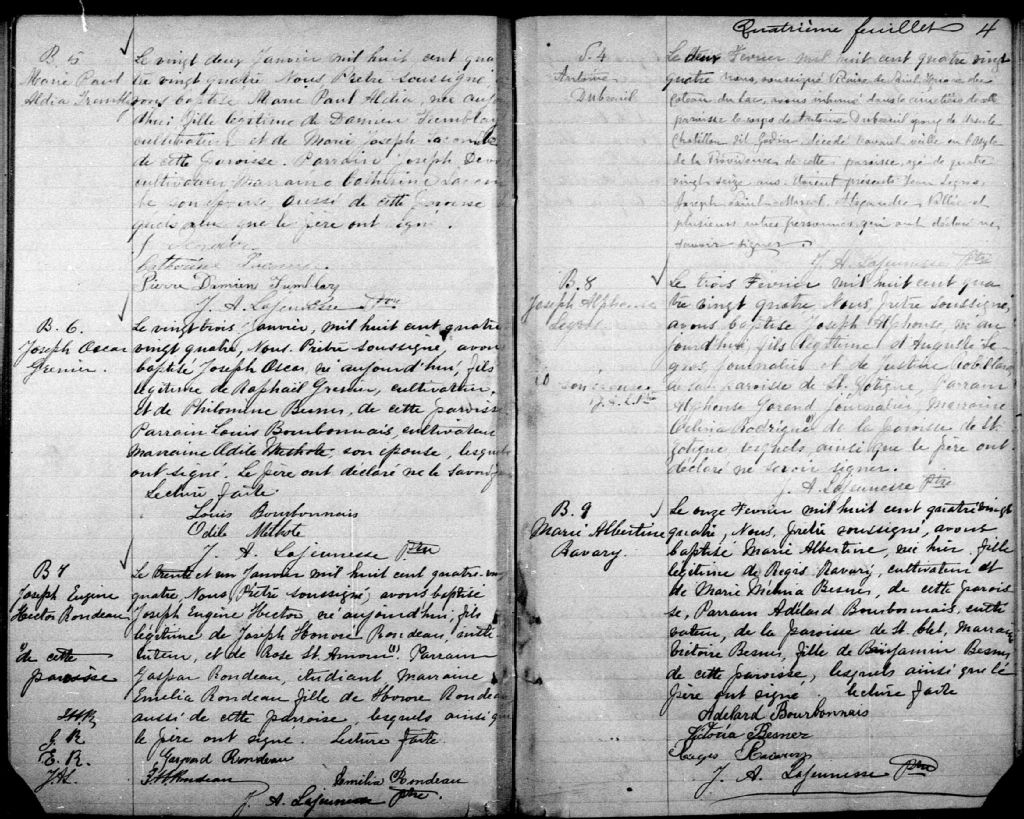 B. 5
Marie Paul
Aldia Tremblay
Le vingt deux Janvier mil huit cent qua
tre vingt quatre Nous Prêtre soussigné
avons baptisé Marie Paul Aldia, née aujour
d'hui fille légitime de Damien Tremblay
cultivateur et de Marie Joseph Lacombe
de cette Paroisse. Parrain Joseph
cultivateur Marraine Catherine Lacom
be son épouse, aussi de cette paroisse
que le père ont signé.
Catherine
Pierre Damien Tremblay
J. A. Lajeunesse Ptre
B. 6.
Joseph Oscar
Grenier.
Le vingt trois Janvier, mil huit cent quatre
vingt quatre, Nous Prêtre soussigné, avons
baptisé Joseph Oscar, né aujourd'hui, fils
légitime de Raphaël Grenier, cultivateur,
et de Philomène Besner, de cette paroisse
Parrain Louis Bourbonnais, cultivateur
Marraine Adile son épouse, lesquels
ont signé. Le père ont déclaré ne le savoir
Lecture faite.
Louis Bourbonnais
Odile Methote
J. A. Lajeunesse Ptre
B 7
Joseph Eugène
Hector Rondeau
"de cette
paroisse
H.R
G. R
E. R.
J.A.L.
Le trente et un Janvier mil huit cent quatre-vin
quatre, Nous, Prêtre soussigné, avons baptisé
Joseph Eugène Hector, né aujourd'hui, fils
légitime de Joseph Honoré Rondeau, culti
vateur, et de Rose St. Amour (1). Parrain
Gaspar Rondeau, étudiant, Marraine
Emélia Rondeau fille de Honoré Rondeau
aussi de cette paroisse, lesquels ainsi que
le père ont signé. Lecture faite.
Gaspard Rondeau
J H Rondeau Emélia Rondeau
J. A. Lajeunesse Ptre.
Quatrième feuillet 4
S. 4
Antoine
Dubreuil
Le deux Février mil huit cent quatre vingt
quatre nous, soussigné Vicaire de Saint Ignace du
Coteau du Lac, avons inhumé dans le cimetière de cette
paroisse le corps de Antoine Dubreuil époux de
Chatillon dit Godin décédé l'avant veille en l'Asyle
de la Providence de cette paroisse, agé de quatre
vingt seize ans. Etaient présents Jean Legros,
Joseph Alexandre et
plusieurs autres personnes, qui ont déclaré ne
savoir signer.
J. A. Lajeunesse Ptre
B. 8
Joseph Alphonse
Legros
Le trois Février mil huit cent qua
tre vingt quatre, Nous, prêtre soussigné,
avons baptisé Joseph Alphonse, né au
jourd'hui, fils légitime d'Auguste Le
gros, journalier et de Justine Robillard
de la paroisse de St. Zotique, Parrain
Alphonse Garand Journalier, Marraine
Rodrigue de la paroisse de St.
Zotique lesquels, ainsi que le père ont
déclaré ne savoir signer.
J. A. Lajeunesse Ptre
B. 9
Marie Albertine
Ravary.
Le onze Février mil huit cent quatre vingt
quatre, Nous, prêtre soussigné, avons
baptisé Marie Albertine, née hier, fille
légitime de Régis Ravary, cultivateur et
de Marie Besner, de cette parois
se, Parrain Adélard Bourbonnais, culti
vateur, de la paroisse de St. Clet, Marraine
Victoire Besner, fille de Benjamin Besner
de cette paroisse, lesquels ainsi que le
père ont signé. lecture faite
Adélard Bourbonnais
Victoria Besner
Ravary
J. A. Lajeunesse Ptre